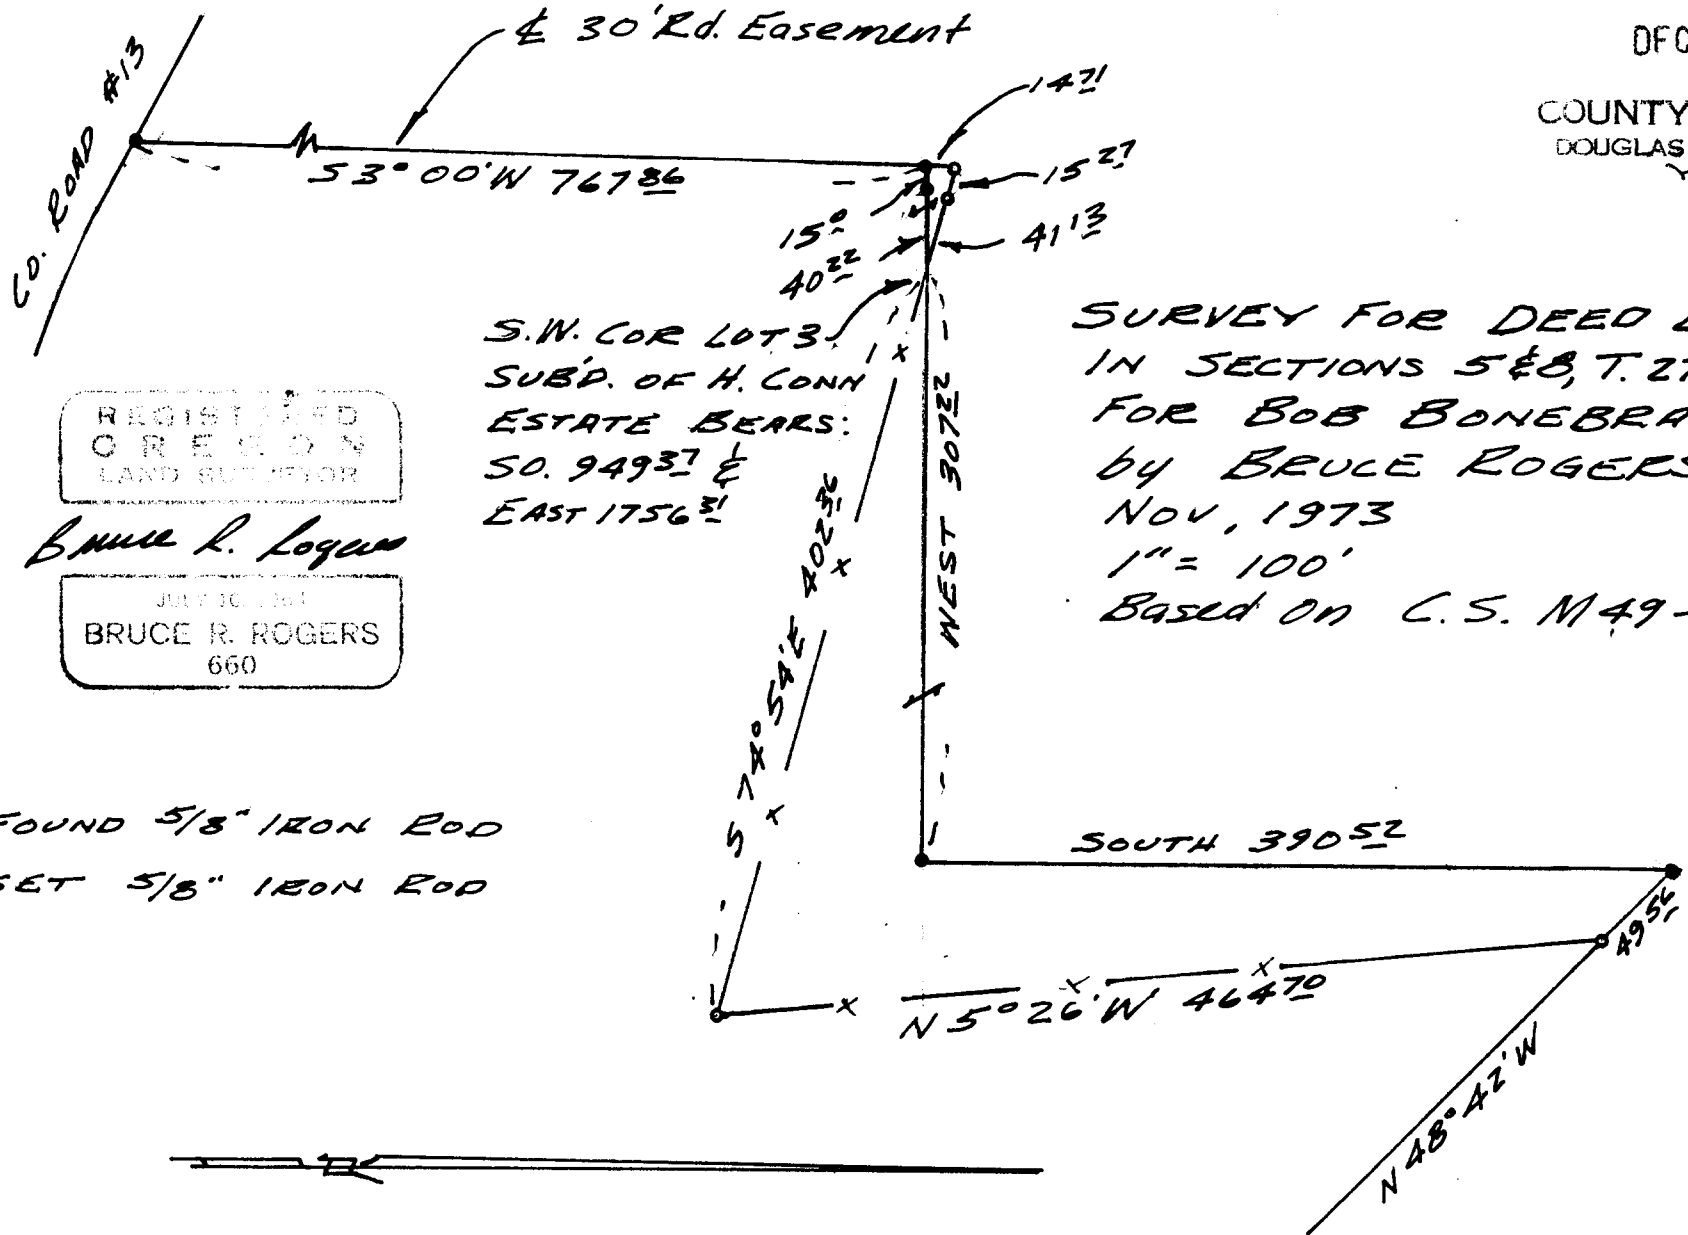 ℄ 30' Rd. Easement
CO. ROAD #13
S 3° 00' W 767 86
14 71
15 27
15 0
40 22
41 13
COUNTY
DOUGLAS
S.W. COR LOT 3
SUB'D. OF H. CONN
ESTATE BEARS:
SO. 949 37 &
EAST 1756 31
SURVEY FOR DEED
IN SECTIONS 5 & 8, T. 27
FOR BOB BONEBRA
by BRUCE ROGERS
Nov, 1973
1" = 100'
Based on C.S. M 49-
REGISTERED
OREGON
LAND SURVEYOR
Bruce R. Rogers
BRUCE R. ROGERS
660
S 74° 54' E 402 36
WEST 307 22
FOUND 5/8" IRON ROD
SET 5/8" IRON ROD
SOUTH 390 52
49 56
N 5° 26' W 464 70
N 48° 42' W